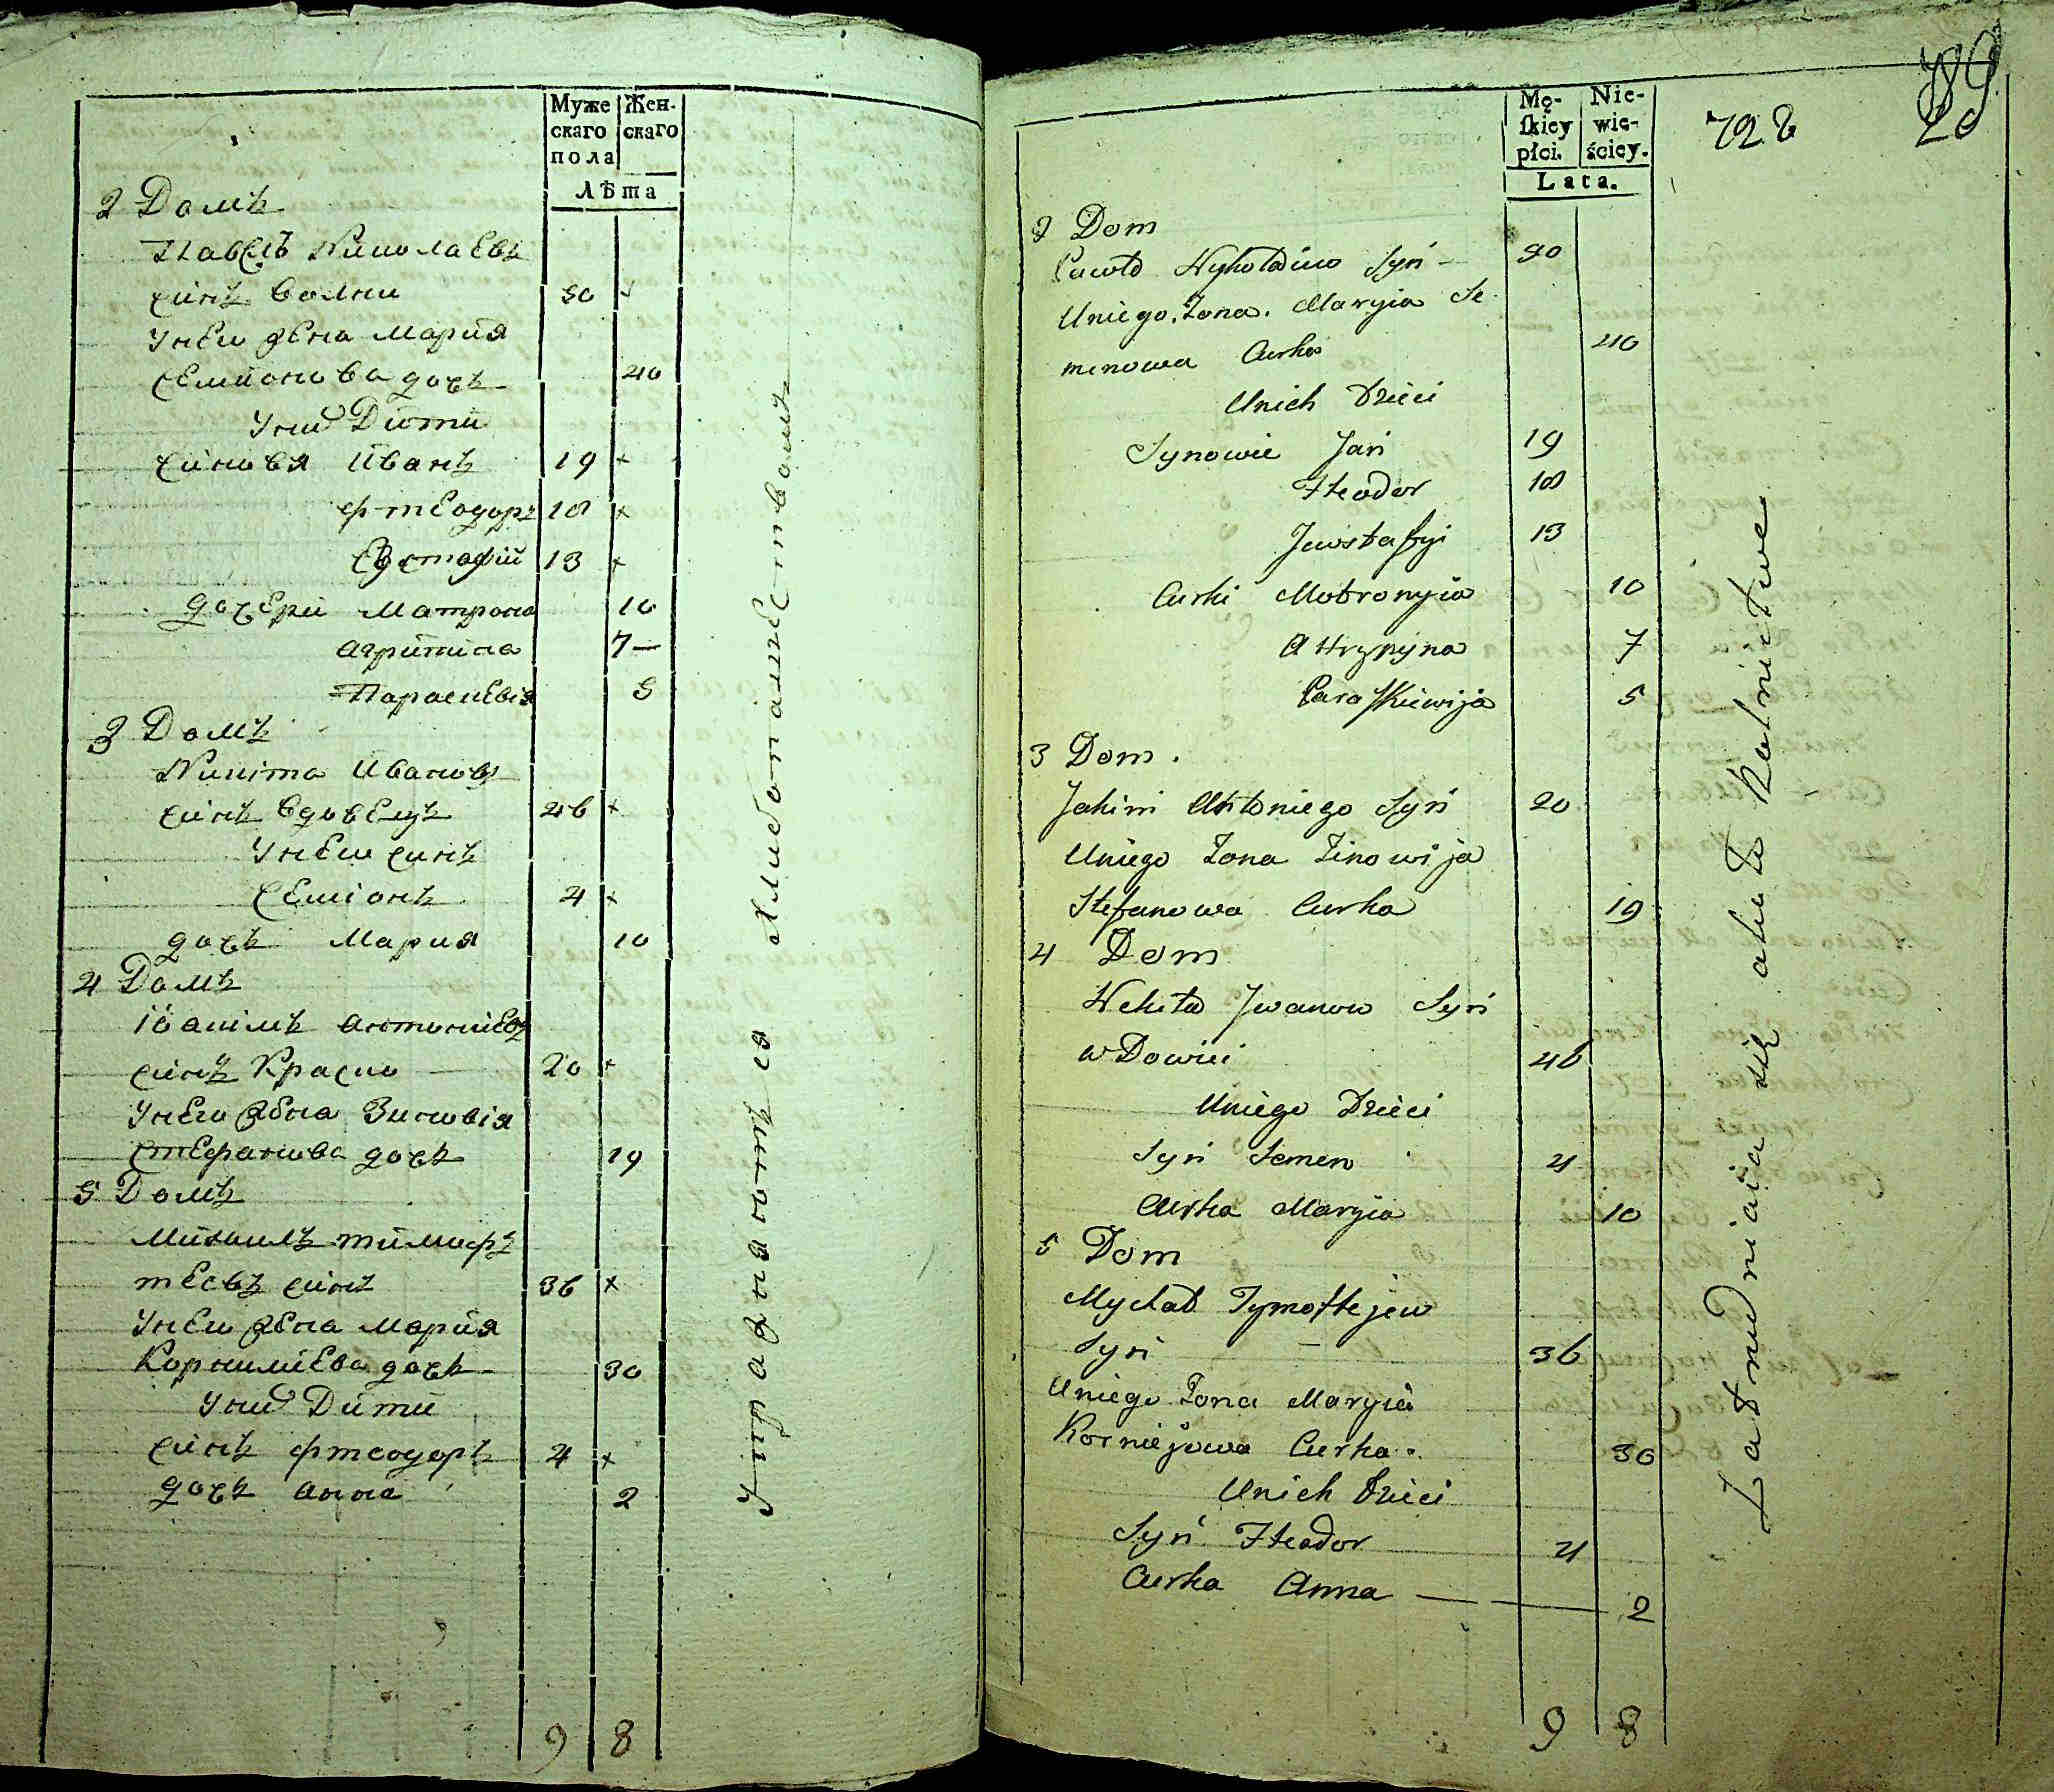 Муже
скаго
пола
Жен-
скаго
Лѣта
2 Домъ
Павелъ Николаевъ
синъ волни 50
Унего жена Мария
Семионова дочь 40
Уних Дѣти
Синовя Иванъ 19 ×
Фтеодоръ 18 ×
Евстафий 13 ×
Дочери Матрона 10
Агрипина 7 —
Параскевія 5
3 Домъ
Никита Ивановъ
синъ вдовецъ 46 ×
Унего синъ
Семіонъ 4 ×
дочь Мария 10
4 Домъ
Іоакимъ Антониевъ
синъ Красно 20 ×
Унего жена Зиновія
Стефанова дочь 19
5 Домъ
Михаилъ тимоф
теевъ синъ 36 ×
Унего жена Мария
Корнилиева дочь 30
Уних Дити
Синъ Фтеодоръ 4 ×
дочь Анна 2
9 8
Упражняютъ ся хлибопашествомъ
Mę-
skiey
płci.
Nie-
wie-
ściey.
Lata.
728
89
2 Dom
Pawło Nykołaiuw Syn 50
Uniego Zona Maryia Se
menowa Curka 40
Unich Dzieci
Synowie Jan 19
Fteodor 18
Jewstafyi 13
Curki Motronyia 10
A Hrypyna 7
Paraskiewija 5
3 Dom.
Jakim Antoniego Syn 20
Uniego Zona Zinowija
Stefanowa Curka 19
4 Dom
Nekita Jwanow Syn
wDowiei 46
Uniego Dzieci
Syn Semen 4
Curka Maryia 10
5 Dom
Mychał Tymoftejew
Syn 36
Uniego Zona Maryia
Korniejowa Curka. 30
Unich Dzieci
Syn Fteodor 4
Curka Anna — 2
9 8
Zatrudniaią się około Rolnictwe